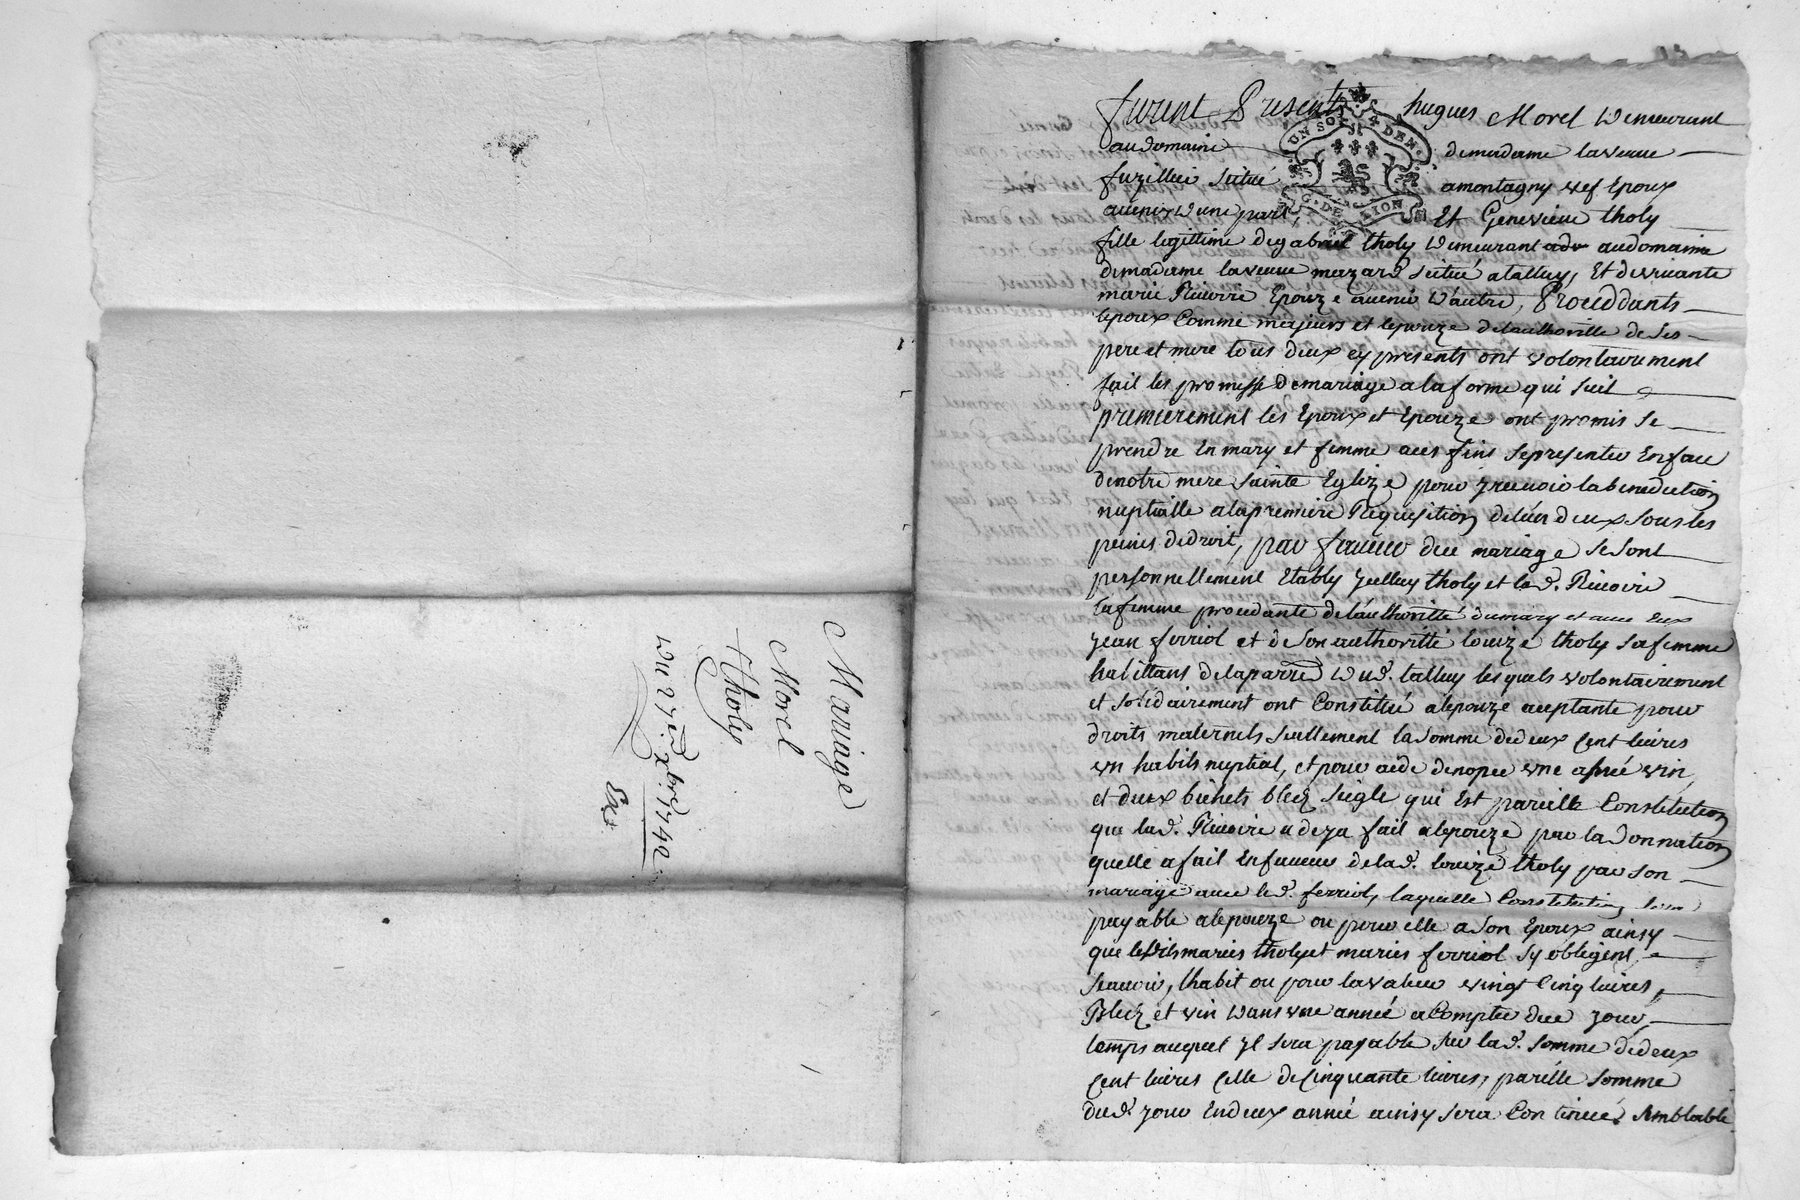 Mariage
Morel
Tholy
Du 27e xbre 1742
Ex
UN SOL 4 DEN.
G. DE LION
furent Presents hugues Morel Demeurant
audomaine demadame laveuve
fuzillier Scitué amontagny vef Epoux
avenir D'une part, Et Genevieve tholy
fille legittime degabriel tholy Demeurant audomaine
demadame laveuve mazard Scitué atalluy, Et devivante
marie Rivoire Epouze avenir D'autre, Proceddants
lepoux Comme majeurs et lepouze delauthoritté de Ses
pere et mere tous deux cy presents ont volontairement
fait les promesse demariage alaforme qui Suit
premierement les Epoux et Epouze ont promis Se
prendre En mary et femme aces fins Sepresenter Enface
denotre mere Sainte Eglize pour y recevoir labenediction
nuptialle alapremiere Requisition delun deux Sous les
peines dedroit, par faveur duce mariage Se Sont
personnellement Etably tholy et lad. Rivoire
Safemme procedante del'authoritté dumary et avec Eux
jean ferriol et de Son authoritté Louize tholy Safemme
habittans delaparre Dud. talluy lesquels volontairement
et Solidairement ont Constitué alepouze aceptante pour
droits maternels Seullement la Somme dedeux Cent livres
un habits nuptial, et pour aide denopce une asnée vin,
et deux bichets bled Seigle qui Est pareille Constitution
que lad. Rivoire a deja fait alepouze par la Donnation
quelle a fait Enfaveur delad. Louize tholy par Son
mariage avec led. ferriol, laquelle Constitution Sera
payable alepouze ou pour elle a Son Epoux ainsy
que lesdits mariés tholy et mariés ferriol Sy obligent,
Scavoir, lhabit ou pour lavaleur vingt Cinq livres,
Bled et vin Dans une année a Compter duce jour,
temps auquel Yl Sera payable Sur lad. Somme dedeux
Cent livres Celle deCinquante livres, pareille Somme
dud. jour Endeux année ainsy Sera Continué Semblable